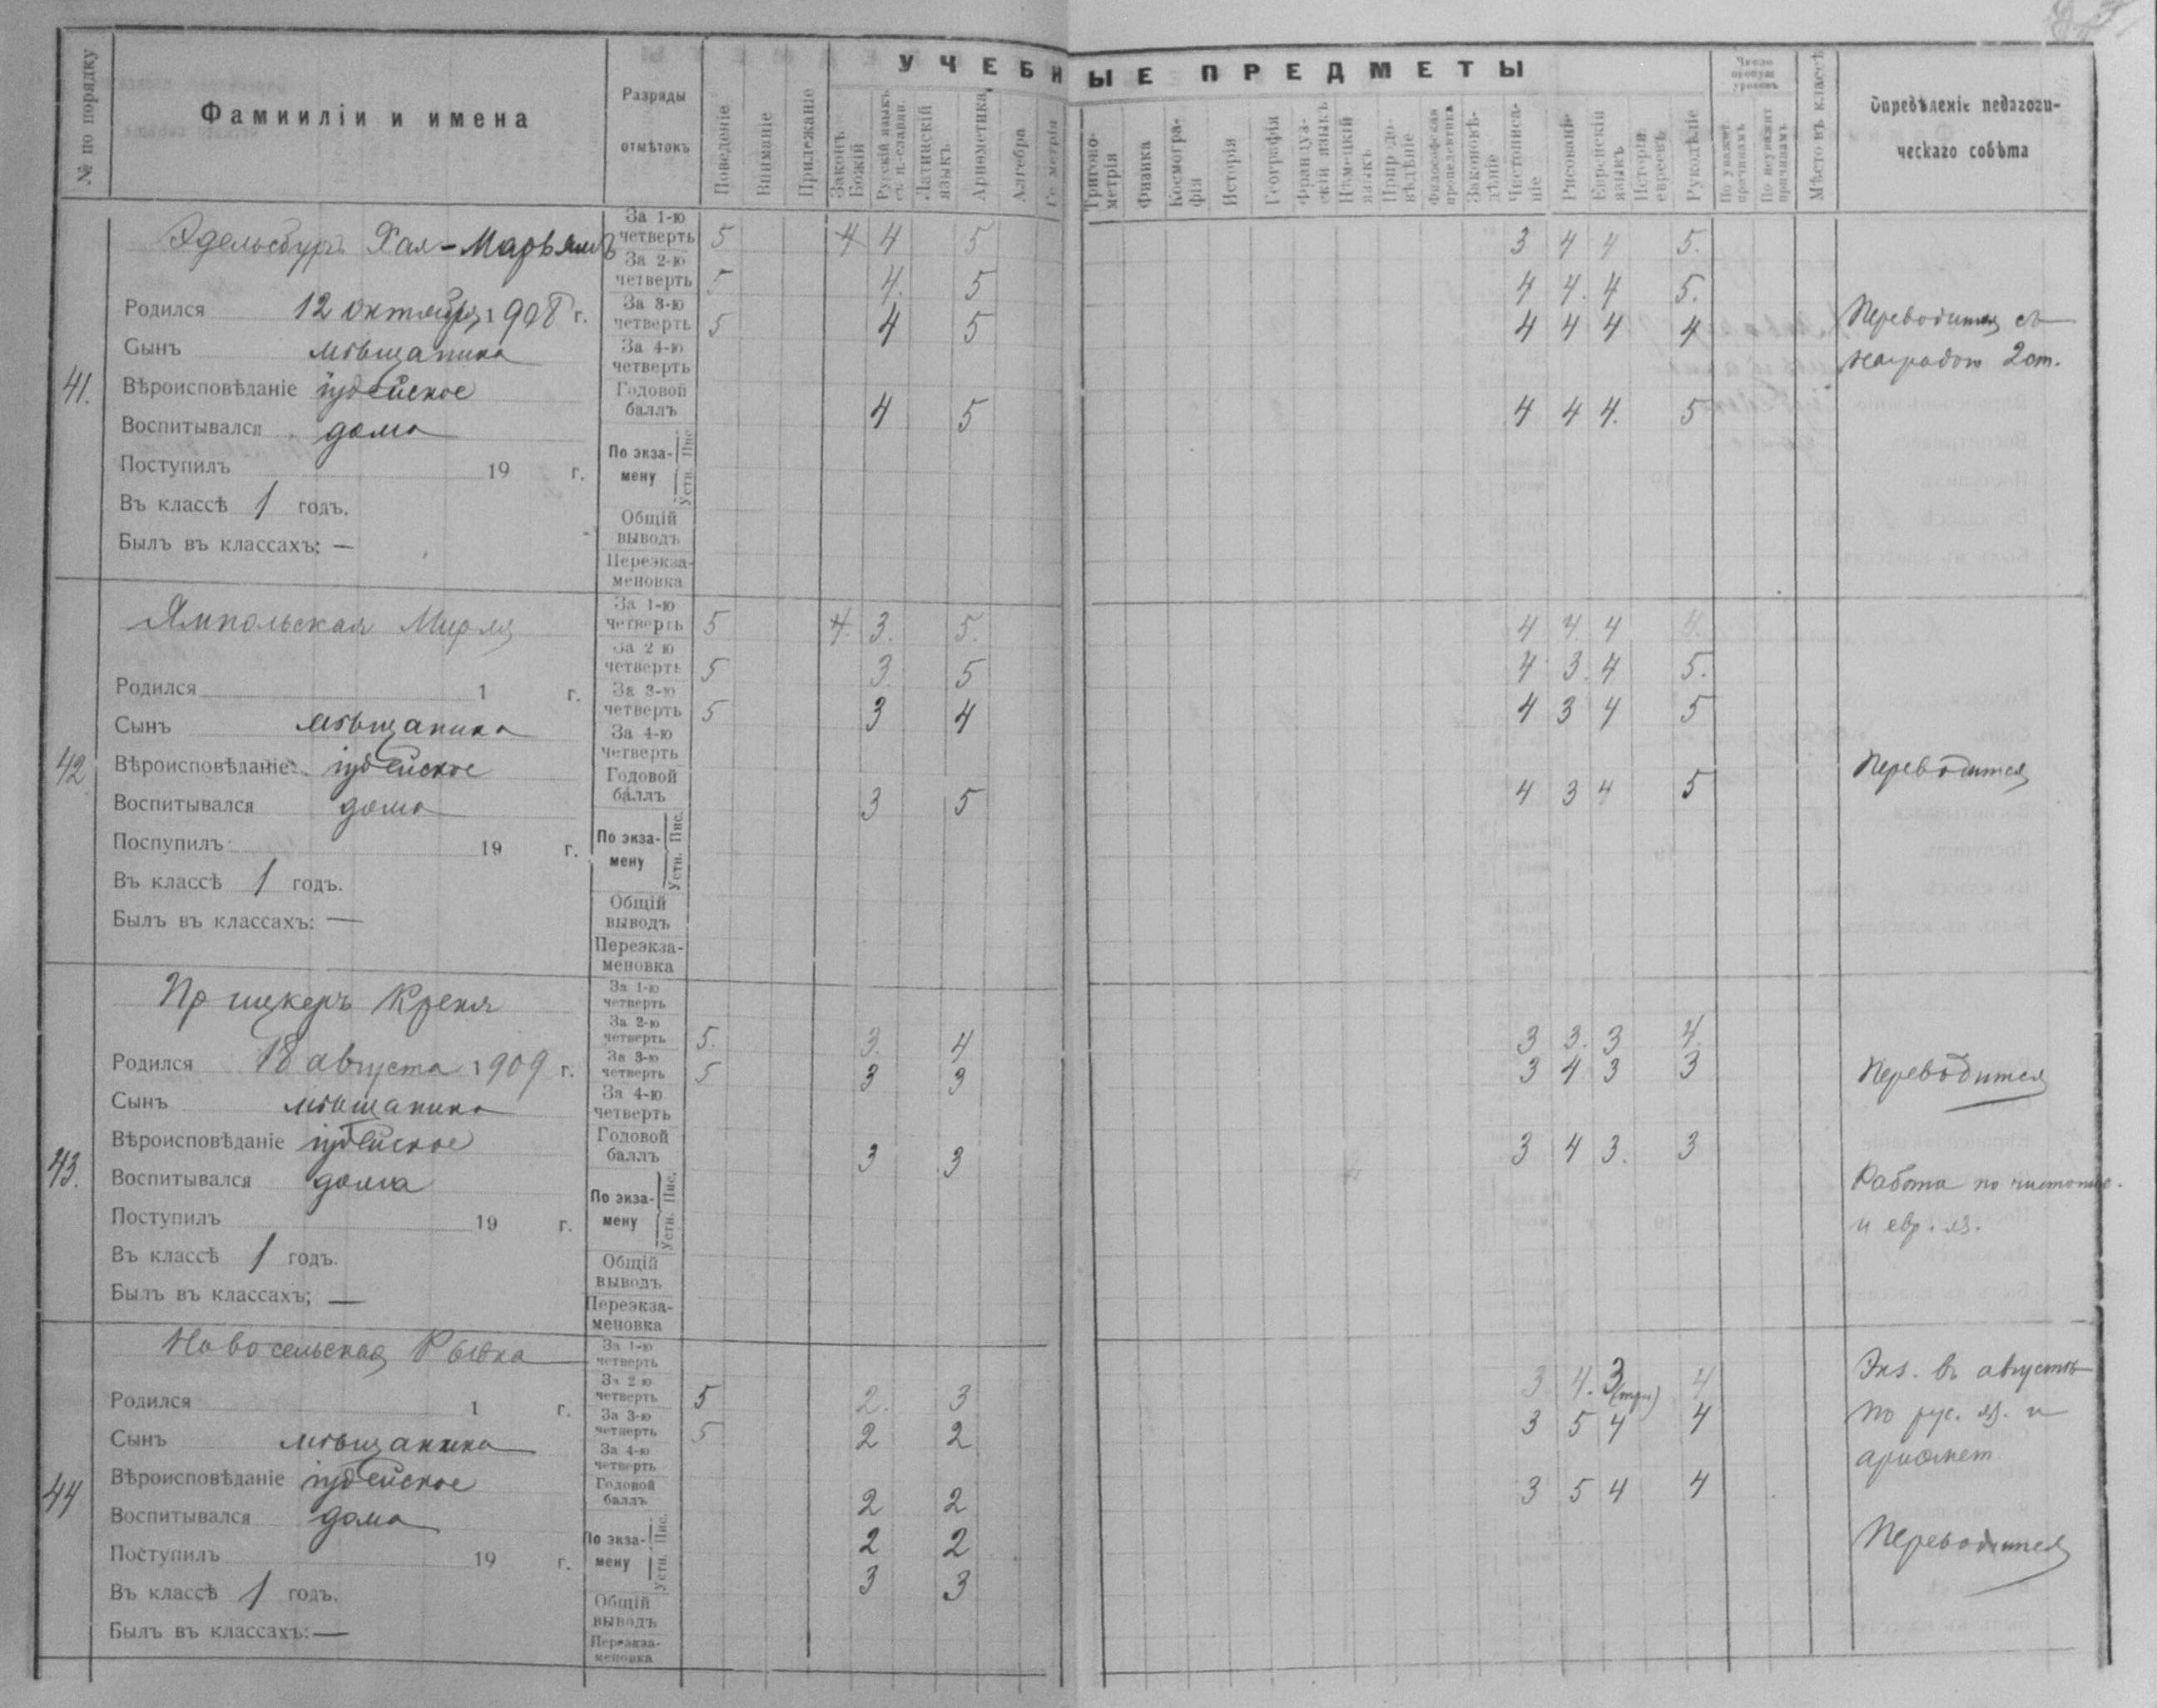 УЧЕБНЫЕ ПРЕДМЕТЫ
№ по порядку
Фамииліи и имена
Разряды отмѣтокъ
Поведеніе
Вниманіе
Прилежаніе
Законъ Божій
Русскій языкъ съ ц.-славян.
Латинскій языкъ
Ариѳометика
Алгебра
Тригоно-метрія
Физика
Космогра-фія
Исторія
География
Француз-скій языкъ
Нѣмецкій языкъ
Природо-вѣдѣніе
Философская пропедевтика
Законовѣ-дѣніе
Чистописа-ніе
Рисованіе
Еврейскій языкъ
Исторія евреевъ
Рукодѣліе
Число пропущ уроковъ
По уважит. причинамъ
По неуважит причинамъ
Мѣсто въ классѣ
Опредѣленіе педагоги-ческаго совѣта
41.
Эдельсбургъ Хая-Марьямъ
Родился 12 октября 1908 г.
Сынъ мѣщанина
Вѣроисповѣданіе іудейское
Воспитывался дома
Поступилъ 19 г.
Въ классѣ 1 годъ.
Былъ въ классахъ: —
За 1-ю четверть 5 4 4 5 3 4 4 5.
За 2-ю четверть 5 4. 5 4 4. 4 5.
За 3-ю четверть 5 4 5 4 4 4 4
За 4-ю четверть
Годовой баллъ 4 5 4 4 4. 5
По экза-мену Пис. Устн.
Общій выводъ
Переэкза-меновка
Переводится съ
наградою 2 ст.
42
Ямпольская Мирля
Родился 1 г.
Сынъ мѣщанина
Вѣроисповѣданіе іудейское
Воспитывался дома
Поспупилъ 19 г.
Въ классѣ 1 годъ.
Былъ въ классахъ: —
За 1-ю четверть 5 4 3. 5. 4 4 4 4.
За 2-ю четверть 5 3 5 4 3. 4 5.
За 3-ю четверть 5 3 4 4 3 4 5
За 4-ю четверть
Годовой баллъ 3 5 4 3 4 5
По экза-мену Пис. Устн.
Общій выводъ
Переэкза-меновка
Переводится
43.
Креня
Родился 18 августа 1909 г.
Сынъ мѣщанина
Вѣроисповѣданіе іудейское
Воспитывался дома
Поступилъ 19 г.
Въ классѣ 1 годъ.
Былъ въ классахъ; —
За 1-ю четверть
За 2-ю четверть 5. 3. 4 3 3. 3 4.
За 3-ю четверть 5 3 3 3 4 3 3
За 4-ю четверть
Годовой баллъ 3 3 3 4 3. 3
По экза-мену Пис. Устн.
Общій выводъ
Переэкза-меновка
Переводится
Работа по чистопис.
и евр. яз.
44
Новосельская Рывка
Родился 1 г.
Сынъ мѣщанина
Вѣроисповѣданіе іудейское
Воспитывался дома
Поступилъ 19 г.
Въ классѣ 1 годъ.
Былъ въ классахъ: —
За 1-ю четверть
За 2-ю четверть 5 2. 3 3 4. 3 (три) 4
За 3-ю четверть 5 2 2 3 5 4 4
За 4-ю четверть
Годовой баллъ 2 2 3 5 4 4
По экза-мену Пис. 2 2
Устн. 3 3
Общій выводъ
Переэкза-меновка
Экз. въ августѣ
по рус. яз. и
ариѳмет.
Переводится